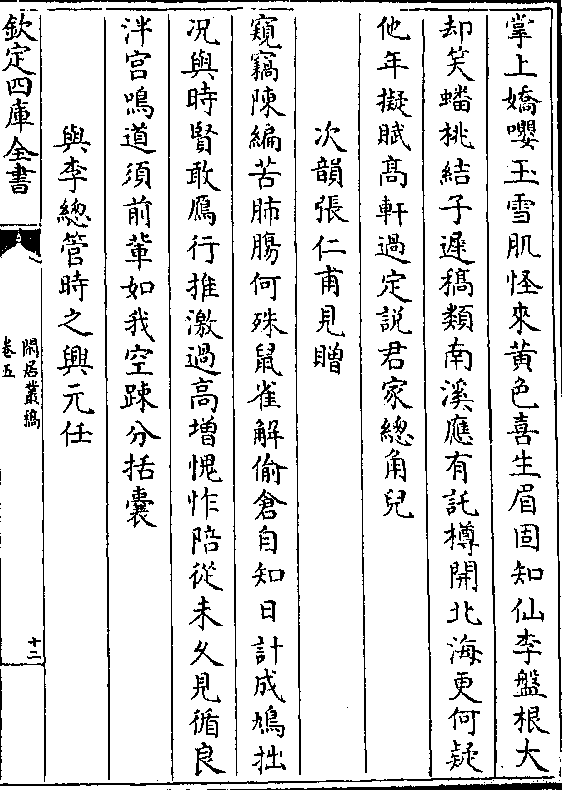 掌上嬌嬰玉雪肌怪來黃色喜生眉固知仙李盤根大
却笑蟠桃結子遲稿類南溪應有託樽開北海更何疑
他年擬賦髙軒過定說君家總角兒
次韻張仁甫見贈
窺竊陳編苦肺膓何殊鼠雀解偷倉自知日計成鳩拙
况與時賢敢鴈行推激過高増愧怍陪從未久見循良
泮宫鳴道須前輩如我空踈分括囊
與李總管時之興元任
欽定四庫全書
閒居叢稿
卷五
十二